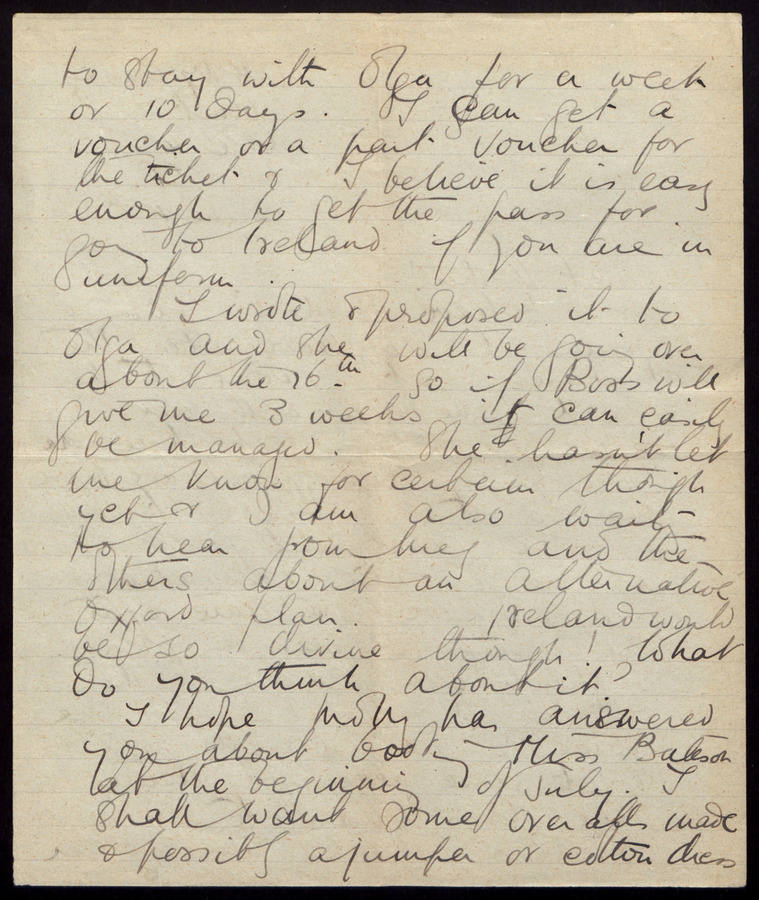 to stay with Olga for a week
or 10 days. I can get a
voucher or a part voucher for
the ticket & I believe it is easy
enough to get the pass for
going to Ireland if you are in
uniform.
I wrote & proposed it to
Olga and she will be going over
about the 16th. So if Boss will
give me 3 weeks it can easily
be managed. She hasn't let
me know for certain though
yet & I am also waiting
to hear from Meg and the
others about an alternative
Oxford plan. Ireland would
be so divine though! What
do you think about it?
I hope Molly has answered
you about booking Miss Bateson
at the beginning of July. I
shall want some overalls made
& possibly a jumper or cotton dress